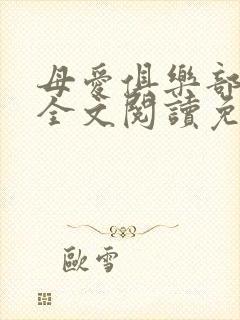 母愛俱樂部
全文閱讀免
歐雪